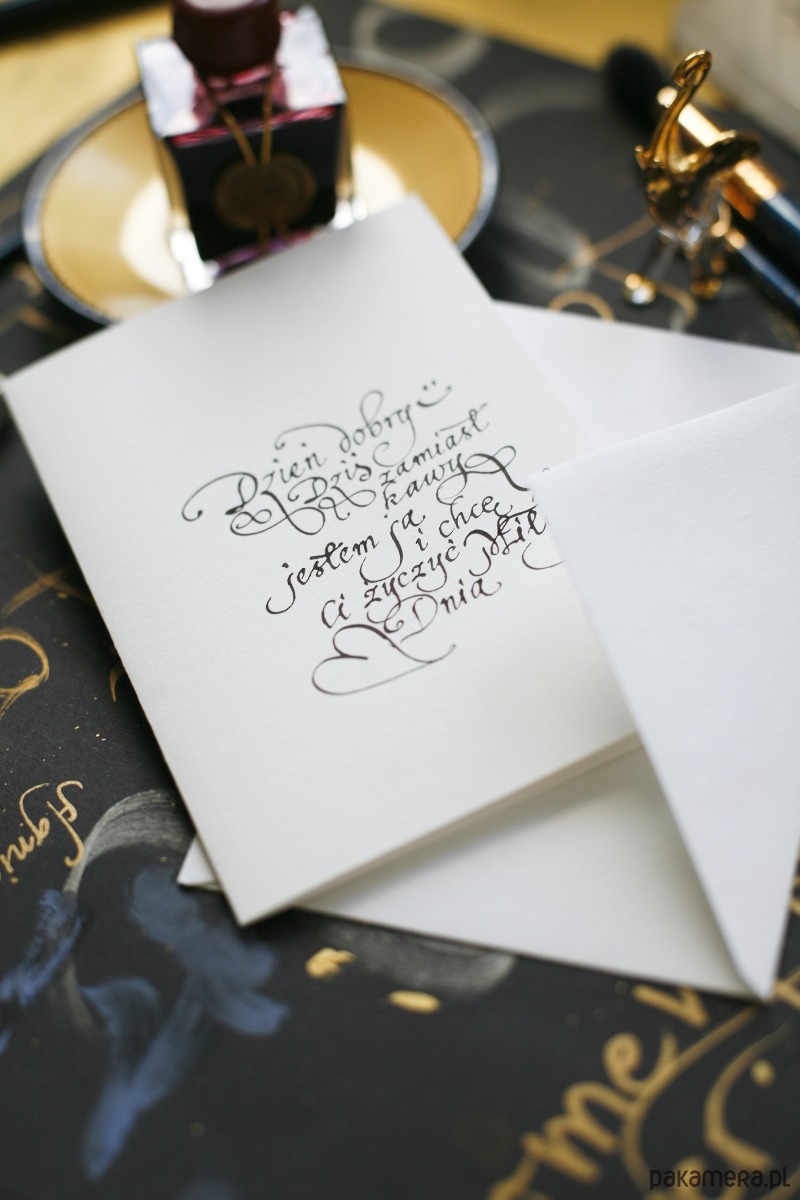 Dzień dobry
Dziś zamiast
kawy
jestem ja
i chcę
Ci życzyć
Dnia
Agni
ome
pakamera.pl